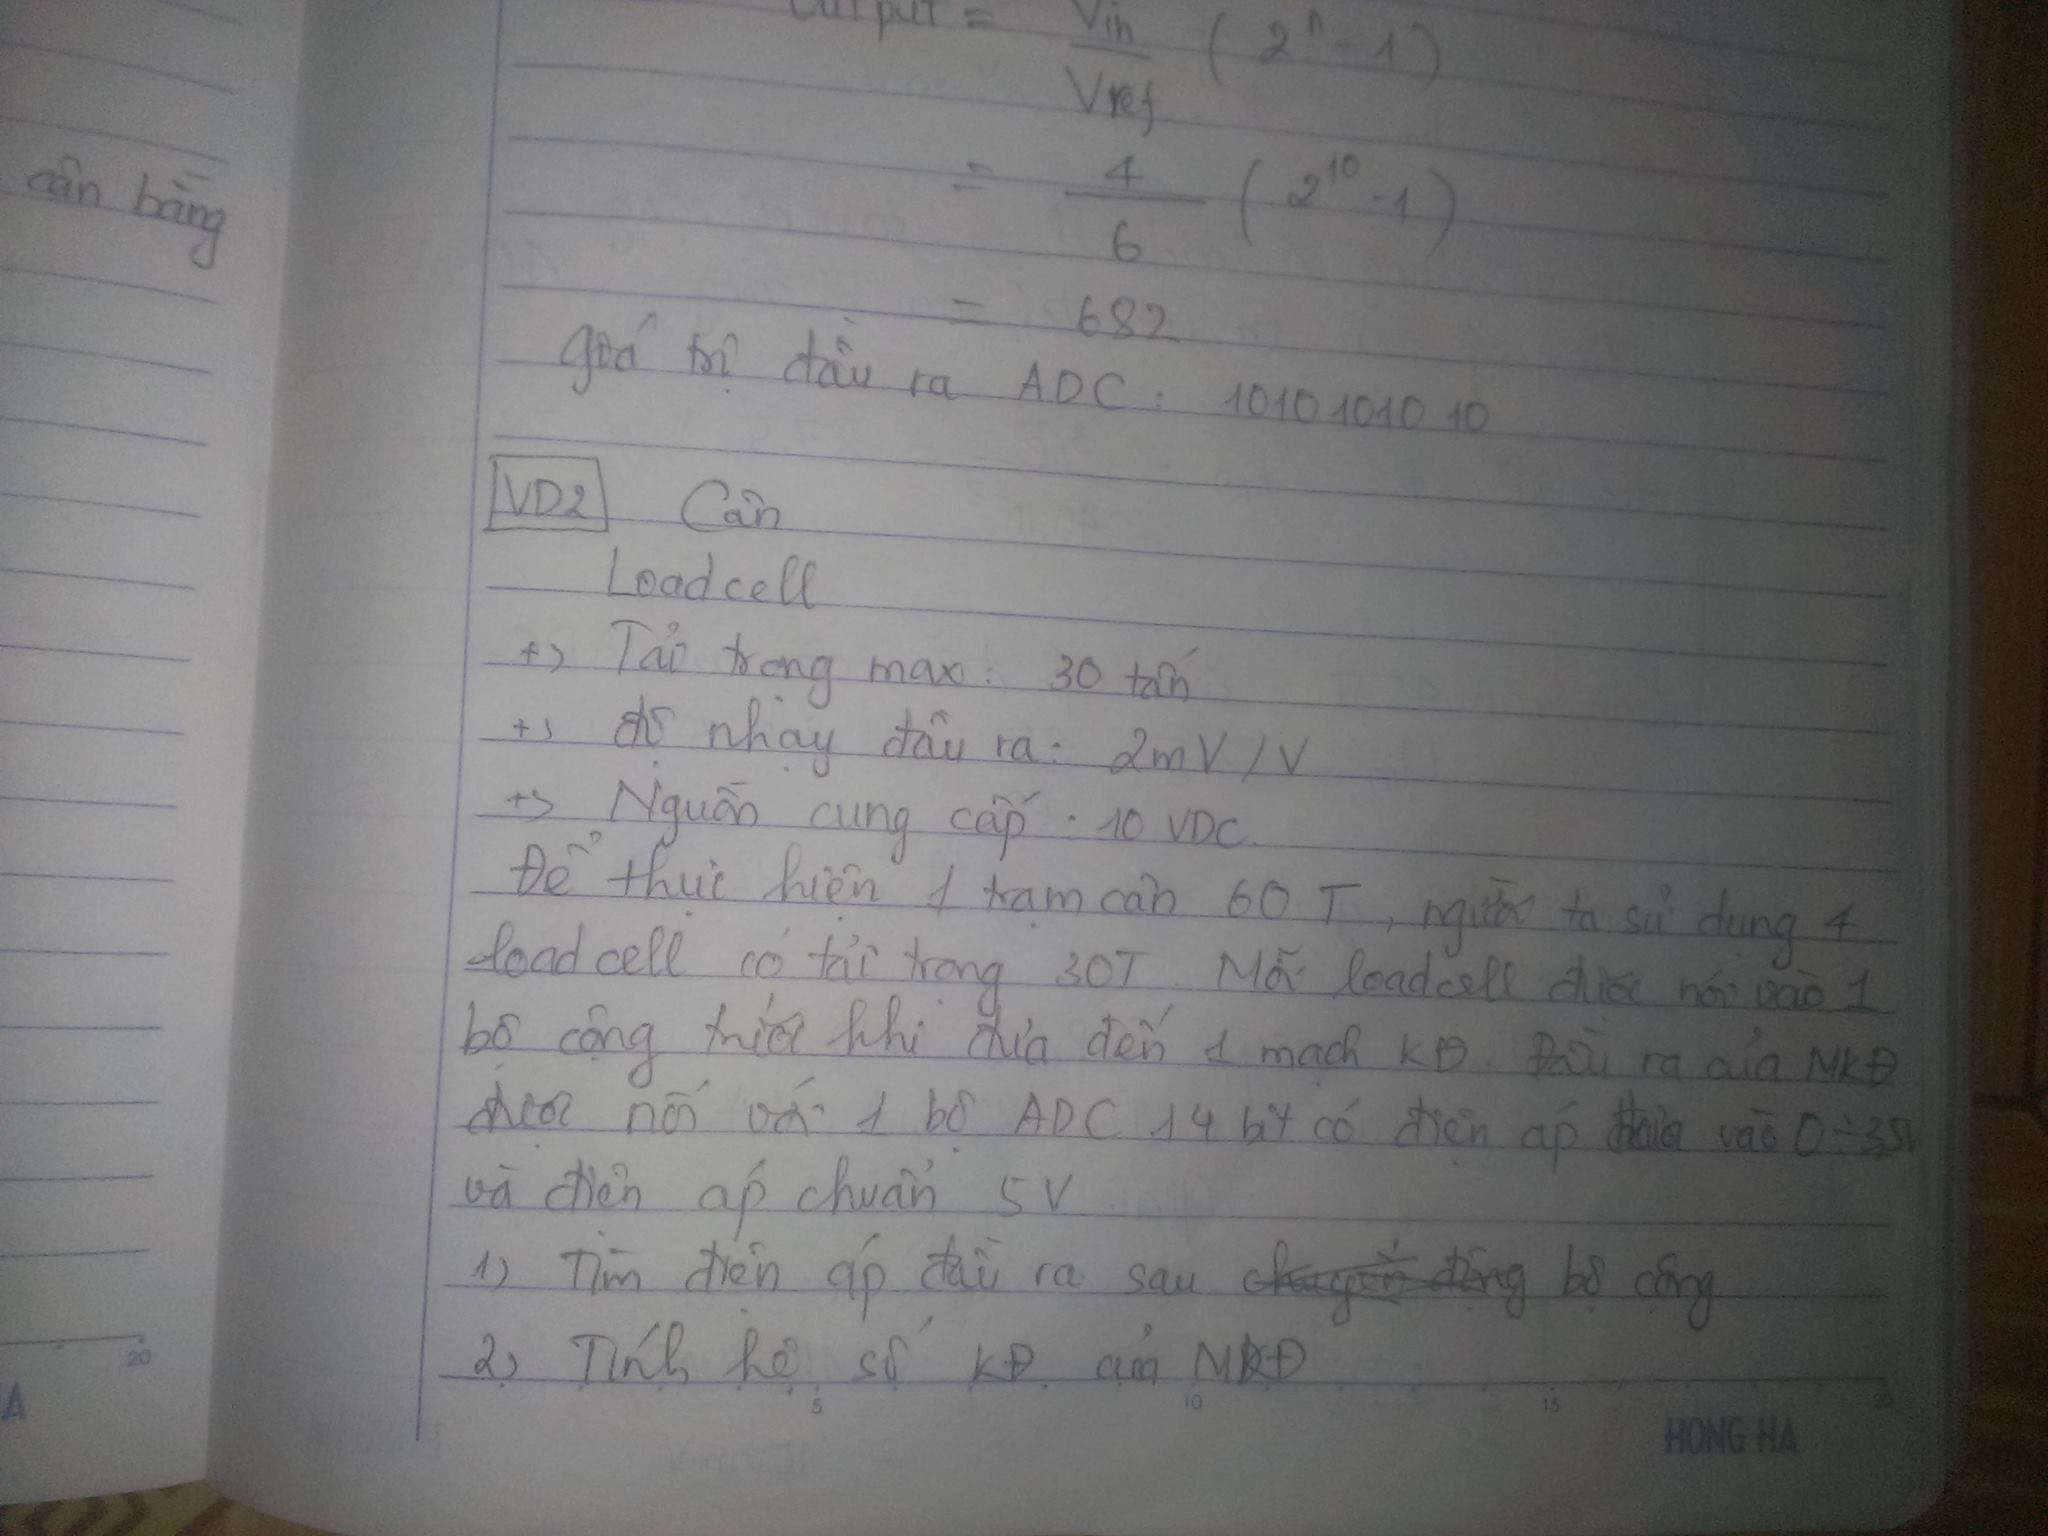 Output = Vin / Vref ( 2^n - 1 )
= 4 / 6 ( 2^10 - 1 )
= 682
giá trị đầu ra ADC : 1010 1010 10
cân bằng
VD2 Cân
Loadcell
+> Tải trọng max : 30 tấn
+> độ nhạy đầu ra : 2mV/V
+> Nguồn cung cấp : 10 VDC.
Để thực hiện 1 trạm cân 60 T, người ta sử dụng 4
loadcell có tải trọng 30T. Mỗi loadcell được nối vào 1
bộ cộng trước khi đưa đến 1 mạch KĐ. Đầu ra của MKĐ
được nối với 1 bộ ADC 14 bit có điện áp vào 0 ÷ 3,5V
và điện áp chuẩn 5V.
1) Tìm điện áp đầu ra sau bộ cộng
2) Tính hệ số KĐ của MKĐ
20
A
5 10 15 20
HONG HA